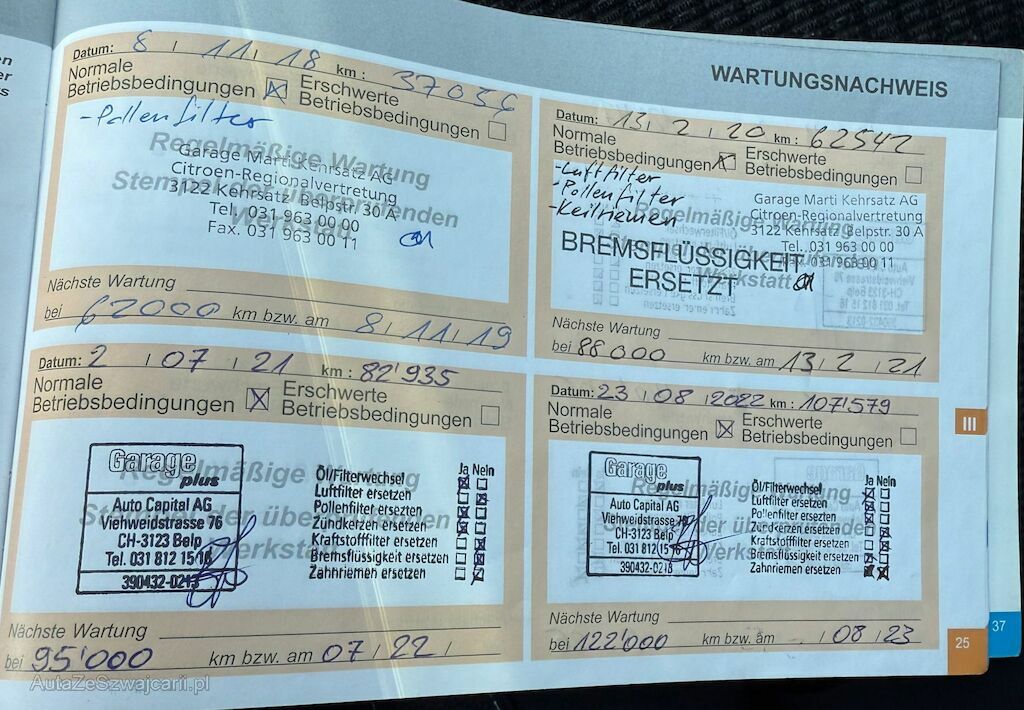 WARTUNGSNACHWEIS
Datum: 8 11 18 km: 37036
Normale
Betriebsbedingungen
Erschwerte
Betriebsbedingungen
-Pollenfilter
Regelmäßige Wartung
Garage Marti Kehrsatz AG
Citroen-Regionalvertretung
3122 Kehrsatz Belpstr. 30 A
Tel. 031 963 00 00
Fax. 031 963 00 11
Nächste Wartung
bei 62000 km bzw. am 8/11/19
Datum: 13 2 20 km: 62542
Normale
Betriebsbedingungen
Erschwerte
Betriebsbedingungen
-Luftfilter
-Pollenfilter
-Keilriemen
Garage Marti Kehrsatz AG
Citroen-Regionalvertretung
3122 Kehrsatz Belpstr. 30 A
Tel. 031 963 00 00
031 963 00 11
BREMSFLÜSSIGKEIT
ERSETZT
Nächste Wartung
bei 88000 km bzw. am 13 2 21
Datum: 2 07 21 km: 82'935
Normale
Betriebsbedingungen
Erschwerte
Betriebsbedingungen
Regelmäßige Wartung
Garage
plus
Auto Capital AG
Viehweidstrasse 76
CH-3123 Belp
Tel. 031 812 15 16
390432-0213
Ja Nein
Öl/Filterwechsel
Luftfilter ersetzen
Pollenfilter ersezten
Zündkerzen ersetzen
Kraftstofffilter ersetzen
Bremsflüssigkeit ersetzen
Zahnriemen ersetzen
Nächste Wartung
bei 95'000 km bzw. am 07 22
Datum: 23 08 2022 km: 107'579
Normale
Betriebsbedingungen
Erschwerte
Betriebsbedingungen
Garage
plus
Auto Capital AG
Viehweidstrasse 76
CH-3123 Belp
Tel. 031 812 15 16
390432-0213
Ja Nein
Öl/Filterwechsel
Luftfilter ersetzen
Pollenfilter ersezten
Zündkerzen ersetzen
Kraftstofffilter ersetzen
Bremsflüssigkeit ersetzen
Zahnriemen ersetzen
Nächste Wartung
bei 122'000 km bzw. am 08 23
III
25
37
AutaZeSzwajcarii.pl